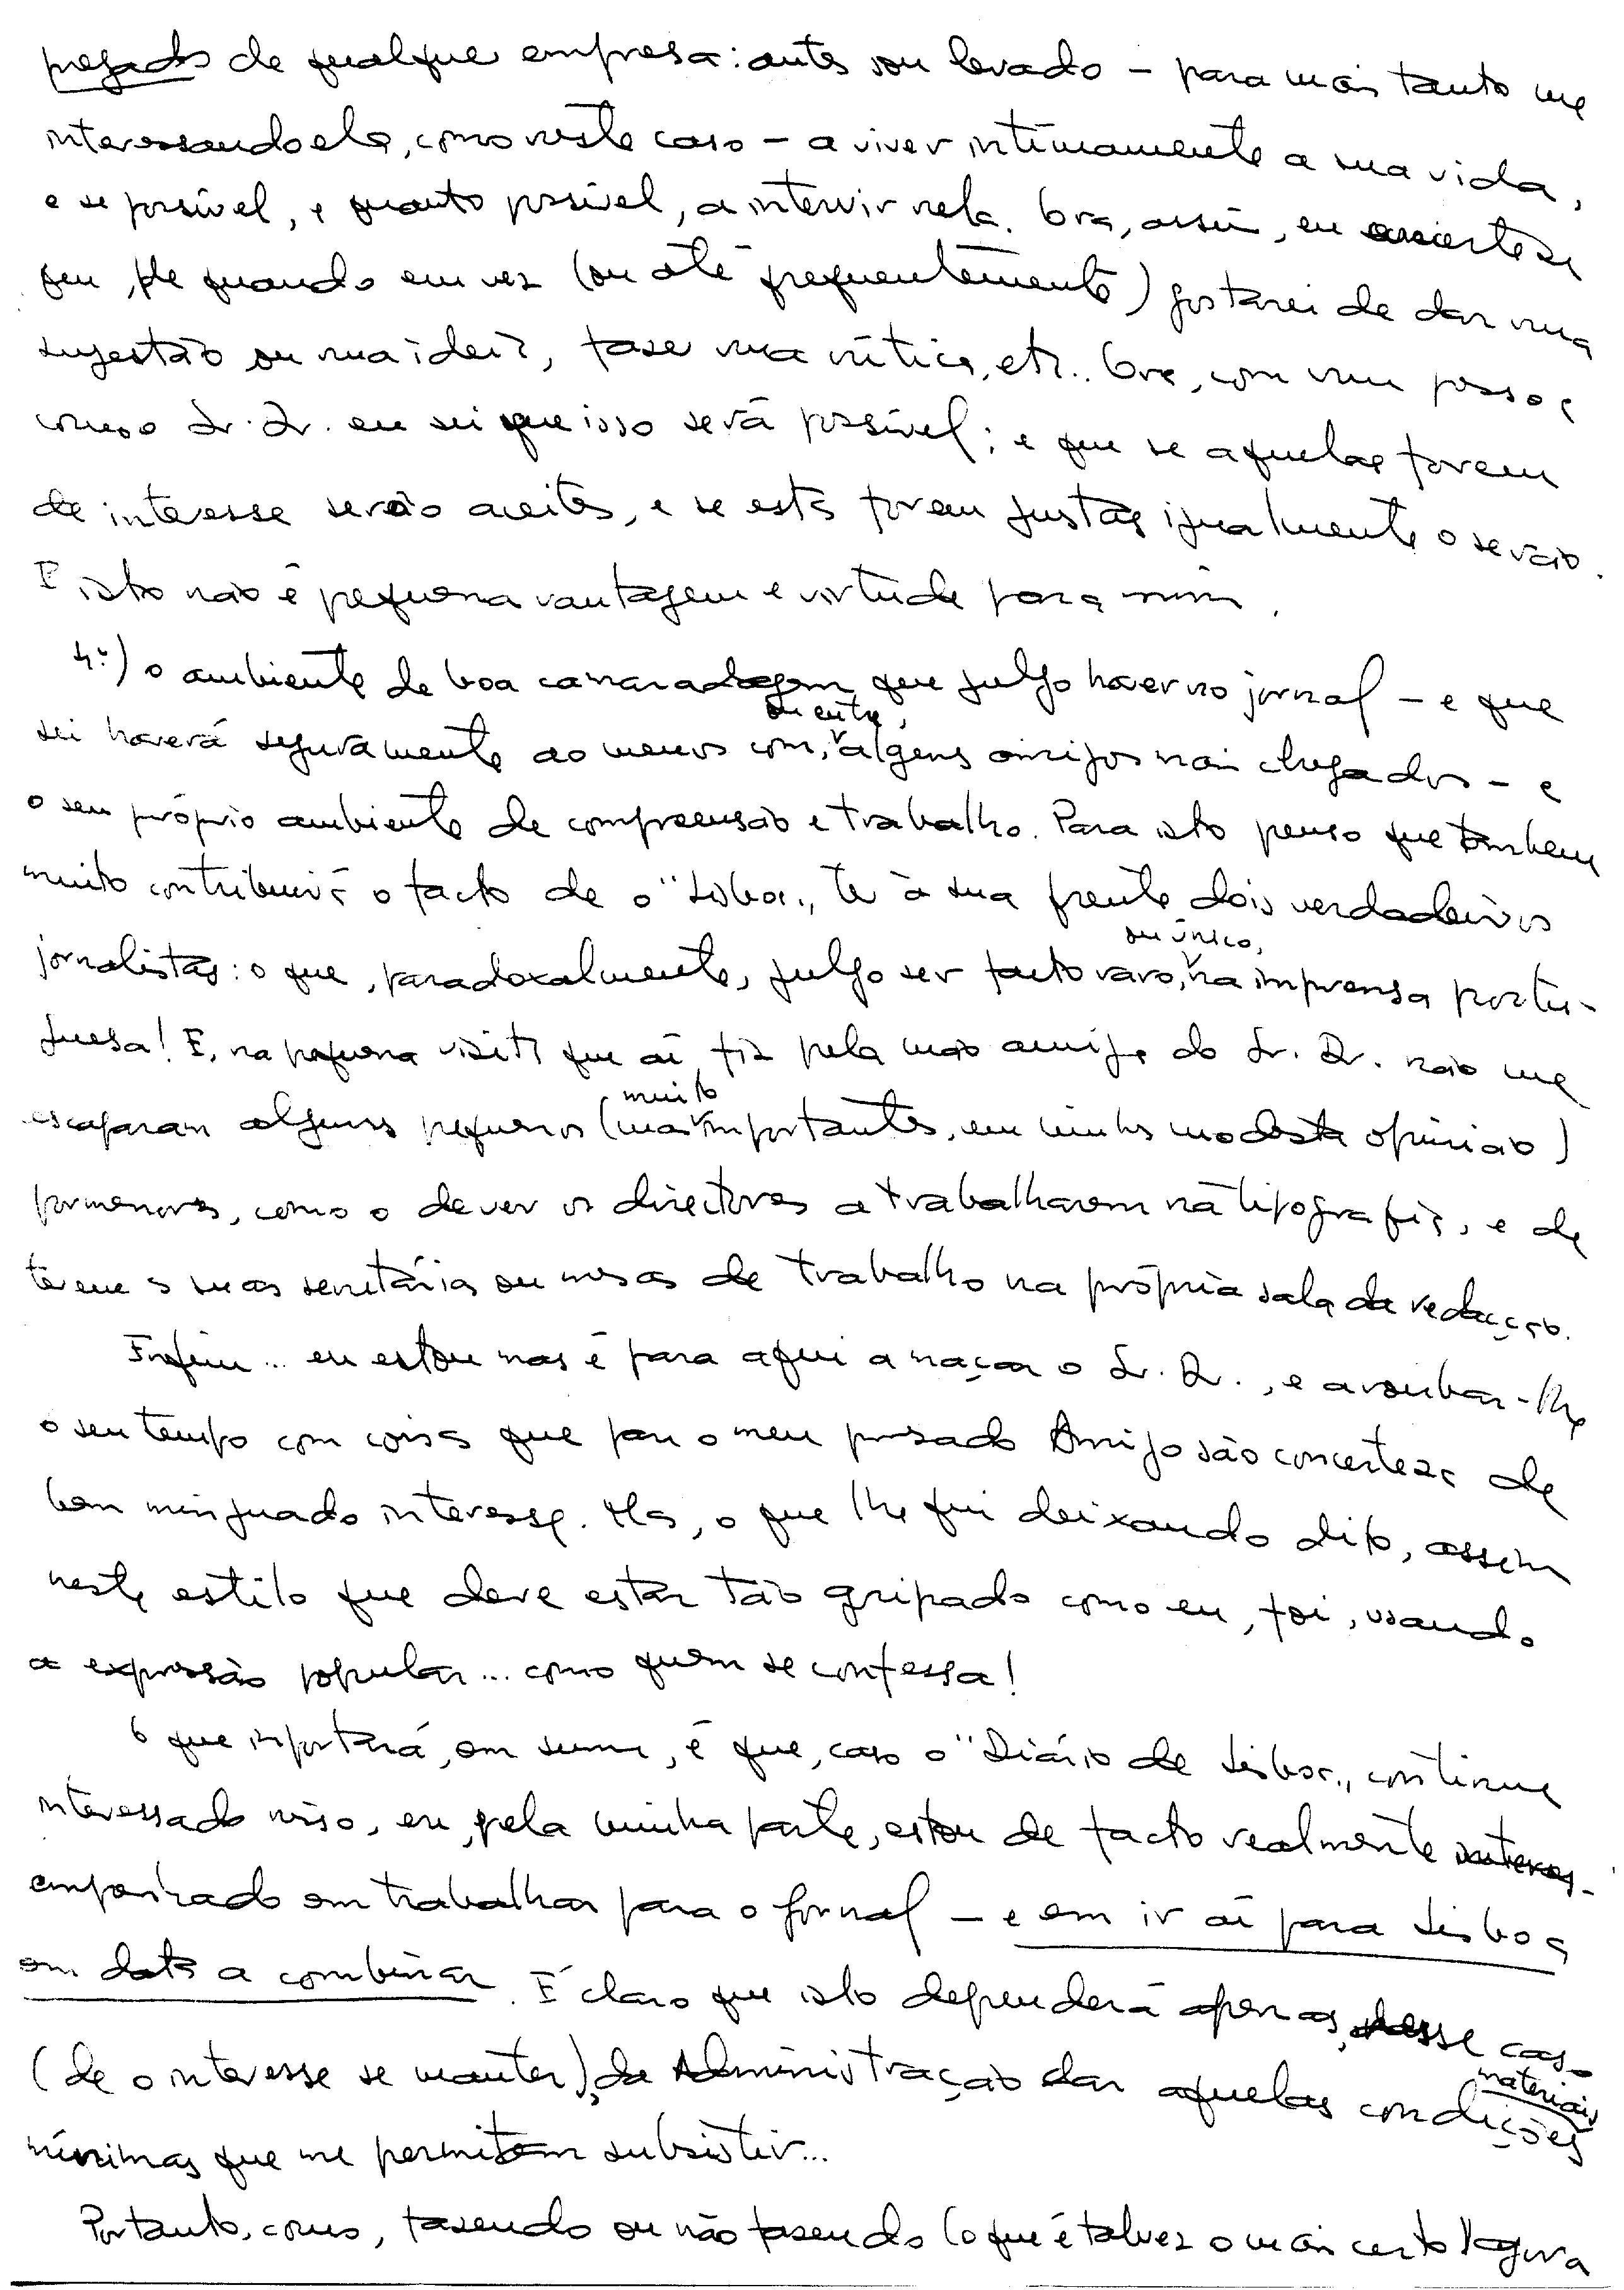 pregado de qualquer empresa: antes sou levado – para mais tanto me
interessando ela, como neste caso – a viver intimamente a sua vida,
e se possível, e quanto possível, a intervir nela. Ora, assim, eu
que, de quando em vez (ou até frequentemente) gostarei de dar uma
sugestão ou uma ideia, fazer uma crítica, etc.. Ora, com uma pessoa
como o Sr. Dr. eu sei que isso será possível; e que se aquelas forem
de interesse serão aceites, e se estas forem justas igualmente o serão.
E isto não é pequena vantagem e virtude para mim.
4.º) o ambiente de boa camaradagem que julgo haver no jornal – e que
sei haverá seguramente ao menos com, ou entre, alguns amigos mais chegados – e
o seu próprio ambiente de compreensão e trabalho. Para isto penso que também
muito contribuirá o facto de o "Lisboa" ter à sua frente dois verdadeiros
jornalistas: o que, paradoxalmente, julgo ser facto raro, ou único, na imprensa portu-
guesa! E, na pequena visita que aí fiz pela mão amiga do Sr. Dr. não me
escaparam alguns pequenos (mas muito importantes, em minha modesta opinião)
pormenores, como o de ver os directores a trabalharem na tipografia, e de
terem as suas secretárias ou mesas de trabalho na própria sala da redacção.
Enfim... eu estou mas é para aqui a maçar o Sr. Dr., e a roubar-lhe
o seu tempo com coisas que para o meu prezado Amigo são concerteza de
bem minguado interesse. Mas, o que lhe fui deixando dito, assim
neste estilo que deve estar tão gripado como eu, foi, usando
a expressão popular... como quem se confessa!
O que importará, em suma, é que, caso o "Diário de Lisboa" continue
interessado nisso, eu, pela minha parte, estou de facto realmente
empenhado em trabalhar para o jornal – e em ir aí para Lisboa
em data a combinar. É claro que isto dependerá apenas, nesse caso
(de o interesse se manter), da Administração dar aquelas condições materiais
mínimas que me permitam subsistir...
Portanto, como, fazendo ou não fazendo (o que é talvez o mais certo) agora